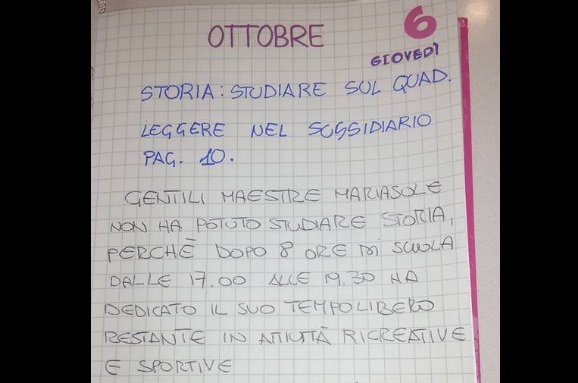 OTTOBRE
6
GIOVEDÌ
STORIA: STUDIARE SUL QUAD.
LEGGERE NEL SUSSIDIARIO
PAG. 10.
GENTILI MAESTRE MARIASOLE
NON HA POTUTO STUDIARE STORIA,
PERCHÈ DOPO 8 ORE DI SCUOLA
DALLE 17.00 ALLE 19.30 HA
DEDICATO IL SUO TEMPO LIBERO
RESTANTE IN ATTIVITÀ RICREATIVE
E SPORTIVE